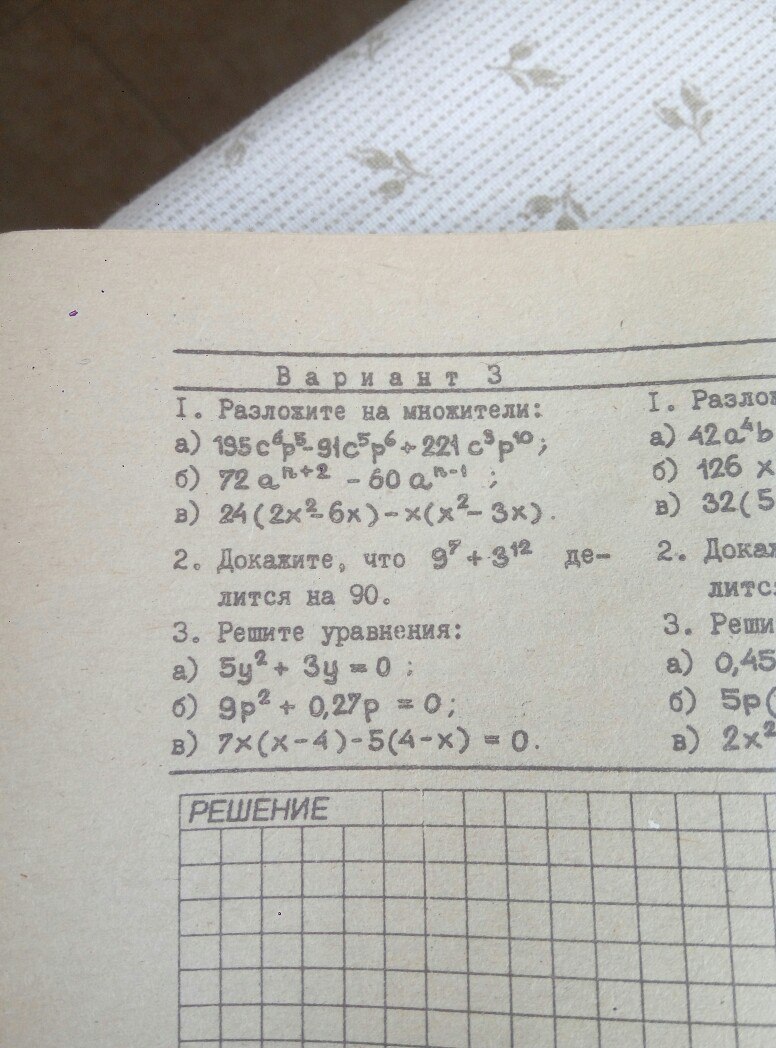 Вариант 3
I. Разложите на множители:
а) 195c⁶p⁵-91c⁵p⁶+221c³p¹⁰;
б) 72aⁿ⁺² - 60aⁿ⁻¹ ;
в) 24(2x²-6x)-x(x²-3x).
2. Докажите, что 9⁷+3¹² де-
лится на 90.
3. Решите уравнения:
а) 5y²+ 3y = 0 ;
б) 9p²+ 0,27p = 0;
в) 7x(x-4)-5(4-x) = 0.
РЕШЕНИЕ
I. Разлож
а) 42a⁴b
б) 126 x
в) 32(5
2. Докаж
литс
3. Реши
а) 0,45
б) 5p(
в) 2x²